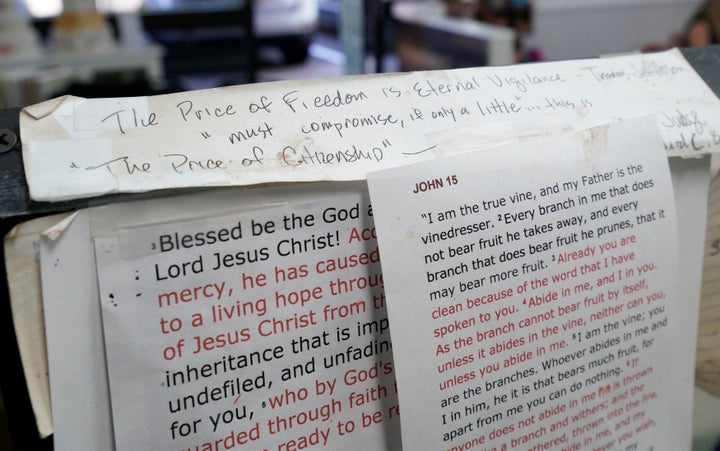 The Price of Freedom is Eternal Vigilance - Thomas Jefferson
"must compromise, if only a little... this is
"The Price of Citizenship" - Judge
3Blessed be the God
Lord Jesus Christ!
mercy, he has caused
to a living hope
of Jesus Christ from
inheritance that is
undefiled, and
for you, 5who by God's
through faith
ready to be
JOHN 15
"I am the true vine, and my Father is the
vinedresser. 2Every branch in me that does
not bear fruit he takes away, and every
branch that does bear fruit he prunes, that it
may bear more fruit. 3Already you are
clean because of the word that I have
spoken to you. 4Abide in me, and I in you.
As the branch cannot bear fruit by itself,
unless it abides in the vine, neither can you,
unless you abide in me. 5I am the vine; you
are the branches. Whoever abides in me and
I in him, he it is that bears much fruit, for
apart from me you can do nothing. 6If
anyone does not abide in me is thrown
a branch and withers; and the
thrown into the fire,
abide in me, and my
you wish,
my